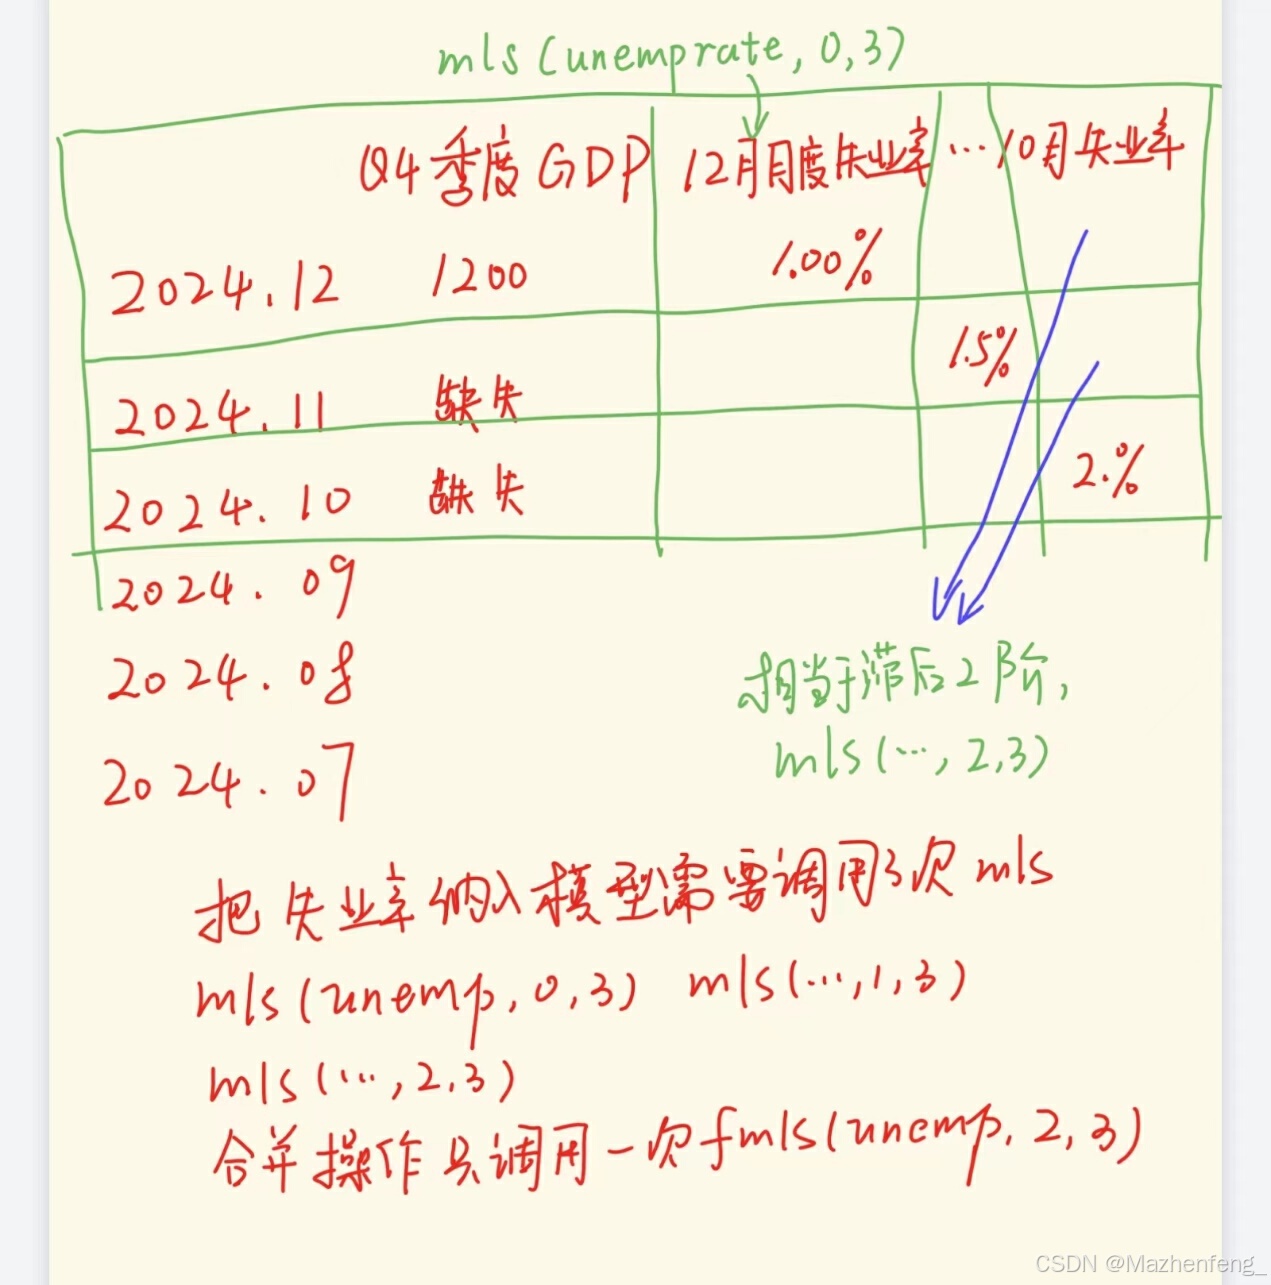 mls(unemprate, 0,3)
Q4季度GDP 12月月度失业率 … 10月失业率
2024.12 1200 1.00%
1.5%
2024.11 缺失
2.%
2024.10 缺失
2024.09
2024.08
2024.07
相当于滞后2阶,
mls(…, 2,3)
把失业率纳入模型需要调用3次mls
mls(unemp, 0,3) mls(…,1,3)
mls(…, 2,3)
合并操作只调用一次fmls(unemp, 2,3)
CSDN @Mazhenfeng_